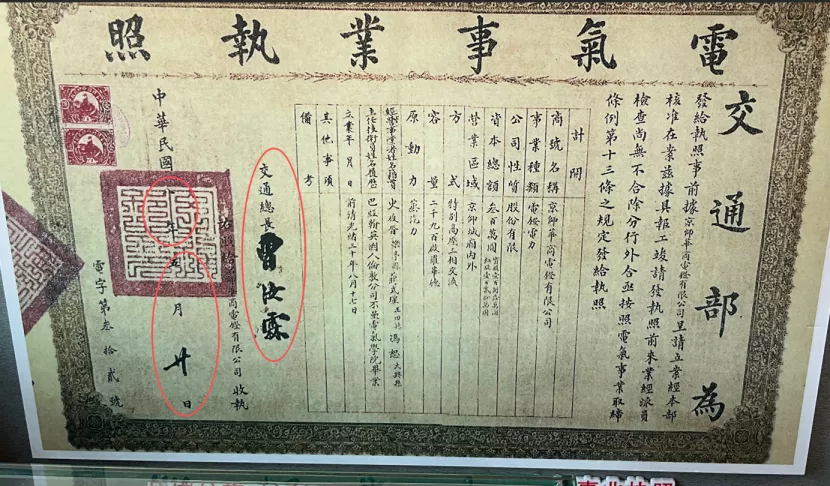 電氣事業執照
交通部為
發給執照事前據京師華商電燈有限公司呈請立案經本部
核准在案茲據具報工竣請發執照前來業經派員
檢查尚無不合除分行外合亟按照電氣事業取締
條例第十三條之規定發給執照
計開
商號名稱 京師華商電燈有限公司
事業種類 電燈電力
公司性質 股份有限
資本總額 叁百萬圓
營業區域 京師城廂內外
方式 特別高壓三相交流
容量 二千九百啟羅華德
原動力 蒸汽力
史履晉 馮恕 大興縣
主任技術員姓名履歷
立業年月日 前清光緒三十年八月十七日
其他事項
備考
商電燈有限公司 收執
交通總長曹汝霖
中華民國 年 月 廿 日
電字第叁拾貳號